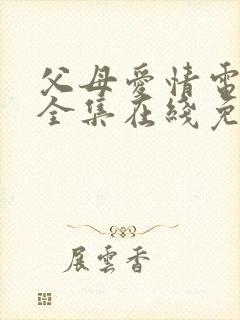 父母愛情電
全集在綫免
展雲香